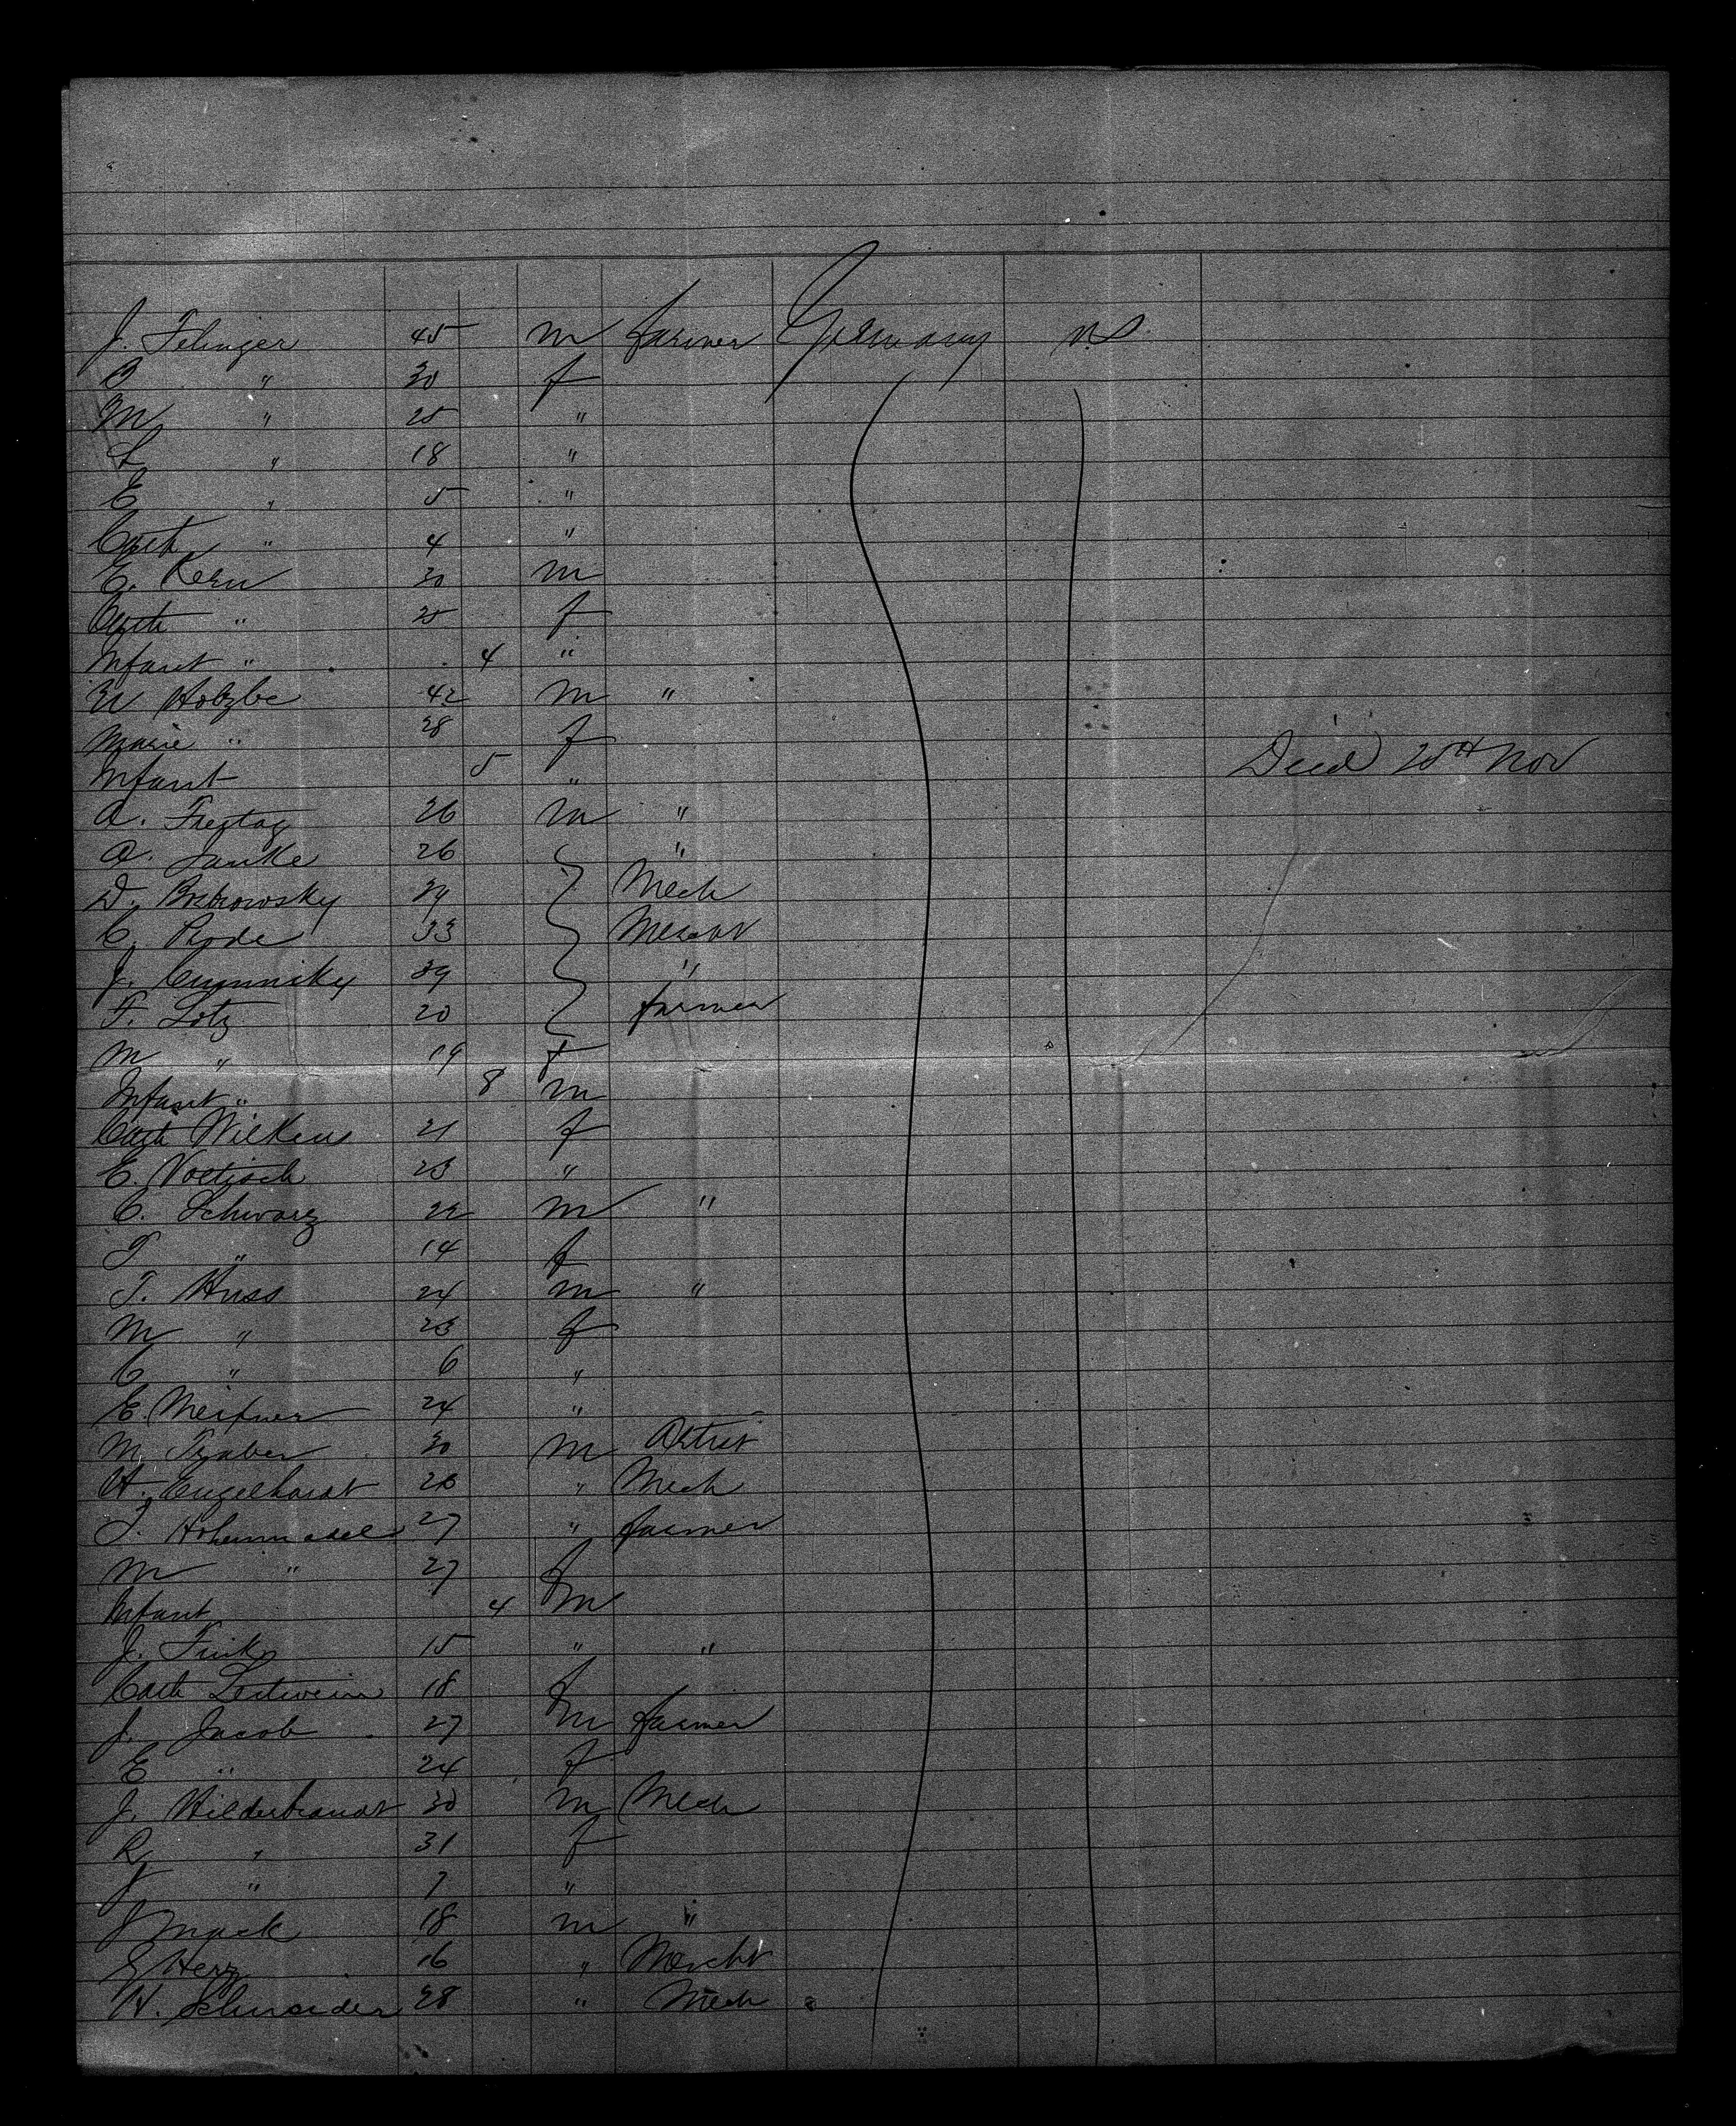 J. Felinger 45 m farmer Germany US
B " 30 f
M " 25 "
L " 18 "
E " 5 "
Cath " 4 "
E. Kern 30 m
Cath " 25 f
Infant " 4 "
W Holzbe 42 m "
Marie " 28 f
Infant 5 " Died 20th Nov
A. Freytag 26 m "
A. Janke 26 "
D. 39 Mech
C. Rode 33
J. 39 "
F. Lotz 20 farmer
M " 19 f
Infant " 8 m
Cath Wilkens 21 f
E. 23 "
C. Schwarz 22 m "
T " 14 f
T. Huss 24 m "
M " 23 f
C " 6 "
E. Meifner 24 "
M. Traber 30 m Artist
H. Engelhardt 28 " Mech
T. 27 " farmer
M " 27 f
Infant 4 m
J. Fink 15 " "
Cath 18 f
J. Jacob 27 m farmer
E " 24 f
J. Hilderbrandt 30 m Mech
R " 31 f
J " 7 "
J Mack 18 m "
G Herz 16 " Mercht
H. Schneider 28 " Mech